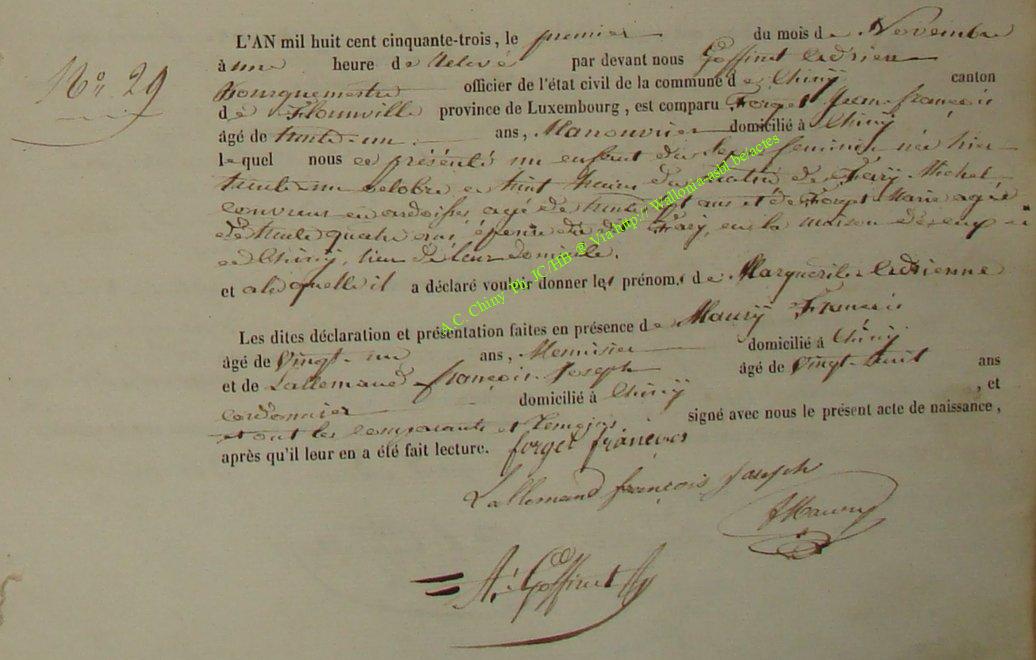 N° 29
L'AN mil huit cent cinquante-trois, le premier du mois de Novembre
à une heure de relevé par devant nous Goffinet Adrien
Bourguemestre officier de l'état civil de la commune de Chiny canton
de Florenville province de Luxembourg, est comparu Forget Jean-françois
âgé de trente-un ans, Manouvrier domicilié à Chiny
lequel nous a présenté un enfant du sexe feminin née hier
trente-un octobre a huit heures du matin de Michel
couvreur en ardoises, agé de trente ans et de Forget Marie agée
de trente quatre ans, épouse du dit en la maison
a Chiny, lieu de leur domicile.
et a laquelle il a déclaré vouloir donner les prénoms de Marguerite Adrienne
Les dites déclaration et présentation faites en présence de Maury François
âgé de vingt-un ans, Menuisier domicilié à Chiny
et de Lallemand françois-Joseph âgé de vingt-huit ans
cordonnier domicilié à Chiny , et
et ont les comparants et temoins signé avec nous le présent acte de naissance,
après qu'il leur en a été fait lecture. forget françois
Lallemand françois Joseph
FMaury
A. Goffinet
A.C. Chiny Ph. JC/HB @ Via http://Wallonia-asbl.be/actes